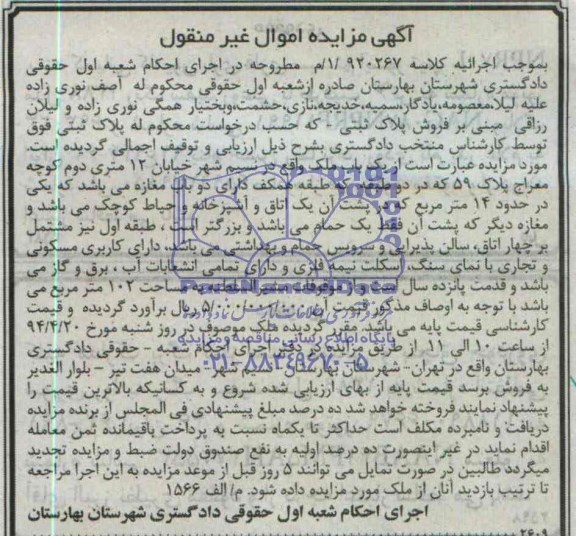 آگهی مزایده اموال غیر منقول
بموجب اجرائیه کلاسه ۹۲۰۲۶۷ /۱/م مطروحه در اجرای احکام شعبه اول حقوقی
دادگستری شهرستان بهارستان صادره ازشعبه اول حقوقی محکوم له آصف نوری زاده
علیه لیلا،معصومه،یادگار،سمیه،خدیجه،نازی،حشمت،وبختیار همگی نوری زاده و لیلان
رزاقی مبنی بر فروش پلاک ثبتی که حسب درخواست محکوم له پلاک ثبتی فوق
توسط کارشناس منتخب دادگستری بشرح ذیل ارزیابی و توقیف اجمالی گردیده است.
مورد مزایده عبارت است از یک باب ملک واقع در نسیم شهر خیابان ۱۲ متری دوم کوچه
معراج پلاک ۵۹ که در دو طبقه که طبقه همکف دارای دو باب مغازه می باشد که یکی
در حدود ۱۴ متر مربع که در پشت آن یک اتاق و آشپزخانه و حیاط کوچک می باشد و
مغازه دیگر که پشت آن فقط یک حمام می باشد و بزرگتر است ، طبقه اول نیز مشتمل
بر چهار اتاق، سالن پذیرایی و سرویس حمام و بهداشتی می باشد، دارای کاربری مسکونی
و تجاری با نمای سنگ، اسکلت نیمه فلزی و دارای تمامی انشعابات آب ، برق و گاز می
باشد و قدمت پانزده سال مساحت ۱۰۲ متر مربع می
باشد با توجه به اوصاف مذکور قیمت ریال برآورد گردیده و قیمت
کارشناسی قیمت پایه می باشد. مقرر گردیده ملک موصوف در روز شنبه مورخ ۹۴/۴/۲۰
از ساعت ۱۰ الی ۱۱ از طریق مزایده در دفتر اجرای احکام شعبه حقوقی دادگستری
بهارستان واقع در تهران- شهرستان بهارستان شهر- میدان هفت تیر – بلوار الغدیر
به فروش برسد قیمت پایه از بهای ارزیابی شده شروع و به کسانیکه بالاترین قیمت را
پیشنهاد نمایند فروخته خواهد شد ده درصد مبلغ پیشنهادی فی المجلس از برنده مزایده
دریافت و نامبرده مکلف است حداکثر تا یکماه نسبت به پرداخت باقیمانده ثمن معامله
اقدام نماید در غیر اینصورت ده درصد اولیه به نفع صندوق دولت ضبط و مزایده تجدید
میگردد طالبین در صورت تمایل می توانند ۵ روز قبل از موعد مزایده به این اجرا مراجعه
تا ترتیب بازدید آنان از ملک مورد مزایده داده شود. م/ الف ۱۵۶۶
اجرای احکام شعبه اول حقوقی دادگستری شهرستان بهارستان
پایگاه اطلاع رسانی مناقصه و مزایده
۰۲۱-۸۸۳۴۹۶۷۰-۵